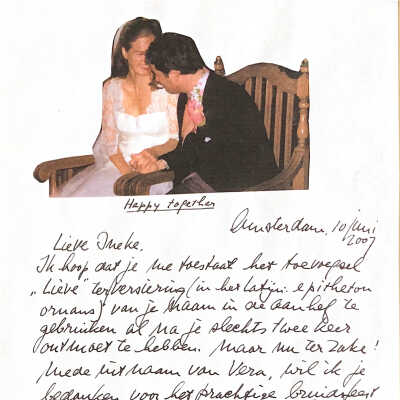 Happy together
Amsterdam, 10 juni
2007
Lieve Ineke.
Ik hoop dat je me toestaat het toevoegsel
„Lieve” ter versiering (in het latijn: epitheton
ornans) van je naam in de aanhef te
gebruiken al na je slechts twee keer
ontmoet te hebben. Maar nu ter zake!
Mede uit naam van Vera, wil ik je
bedanken voor het prachtige bruidsfeest